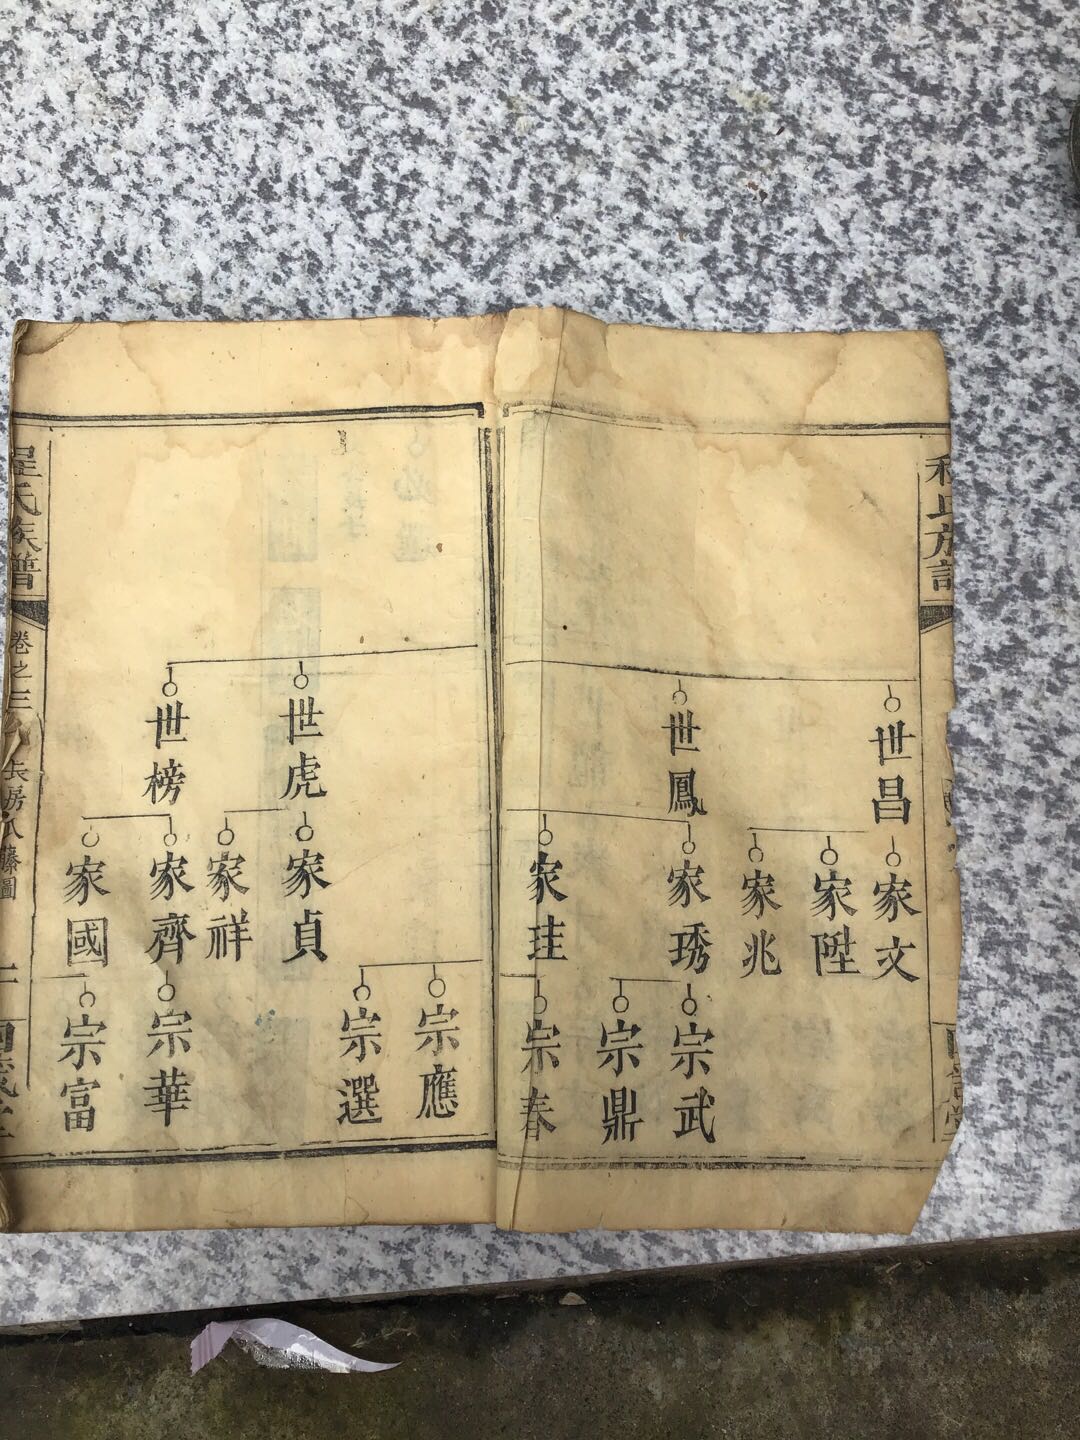 程氏族譜
世昌
世鳳
家文
家陞
家兆
家琇
家珪
宗武
宗鼎
宗春
世虎
世榜
家貞
家祥
家齊
家國
宗應
宗選
宗華
宗富
程氏族譜
卷之三
長房八滕圖